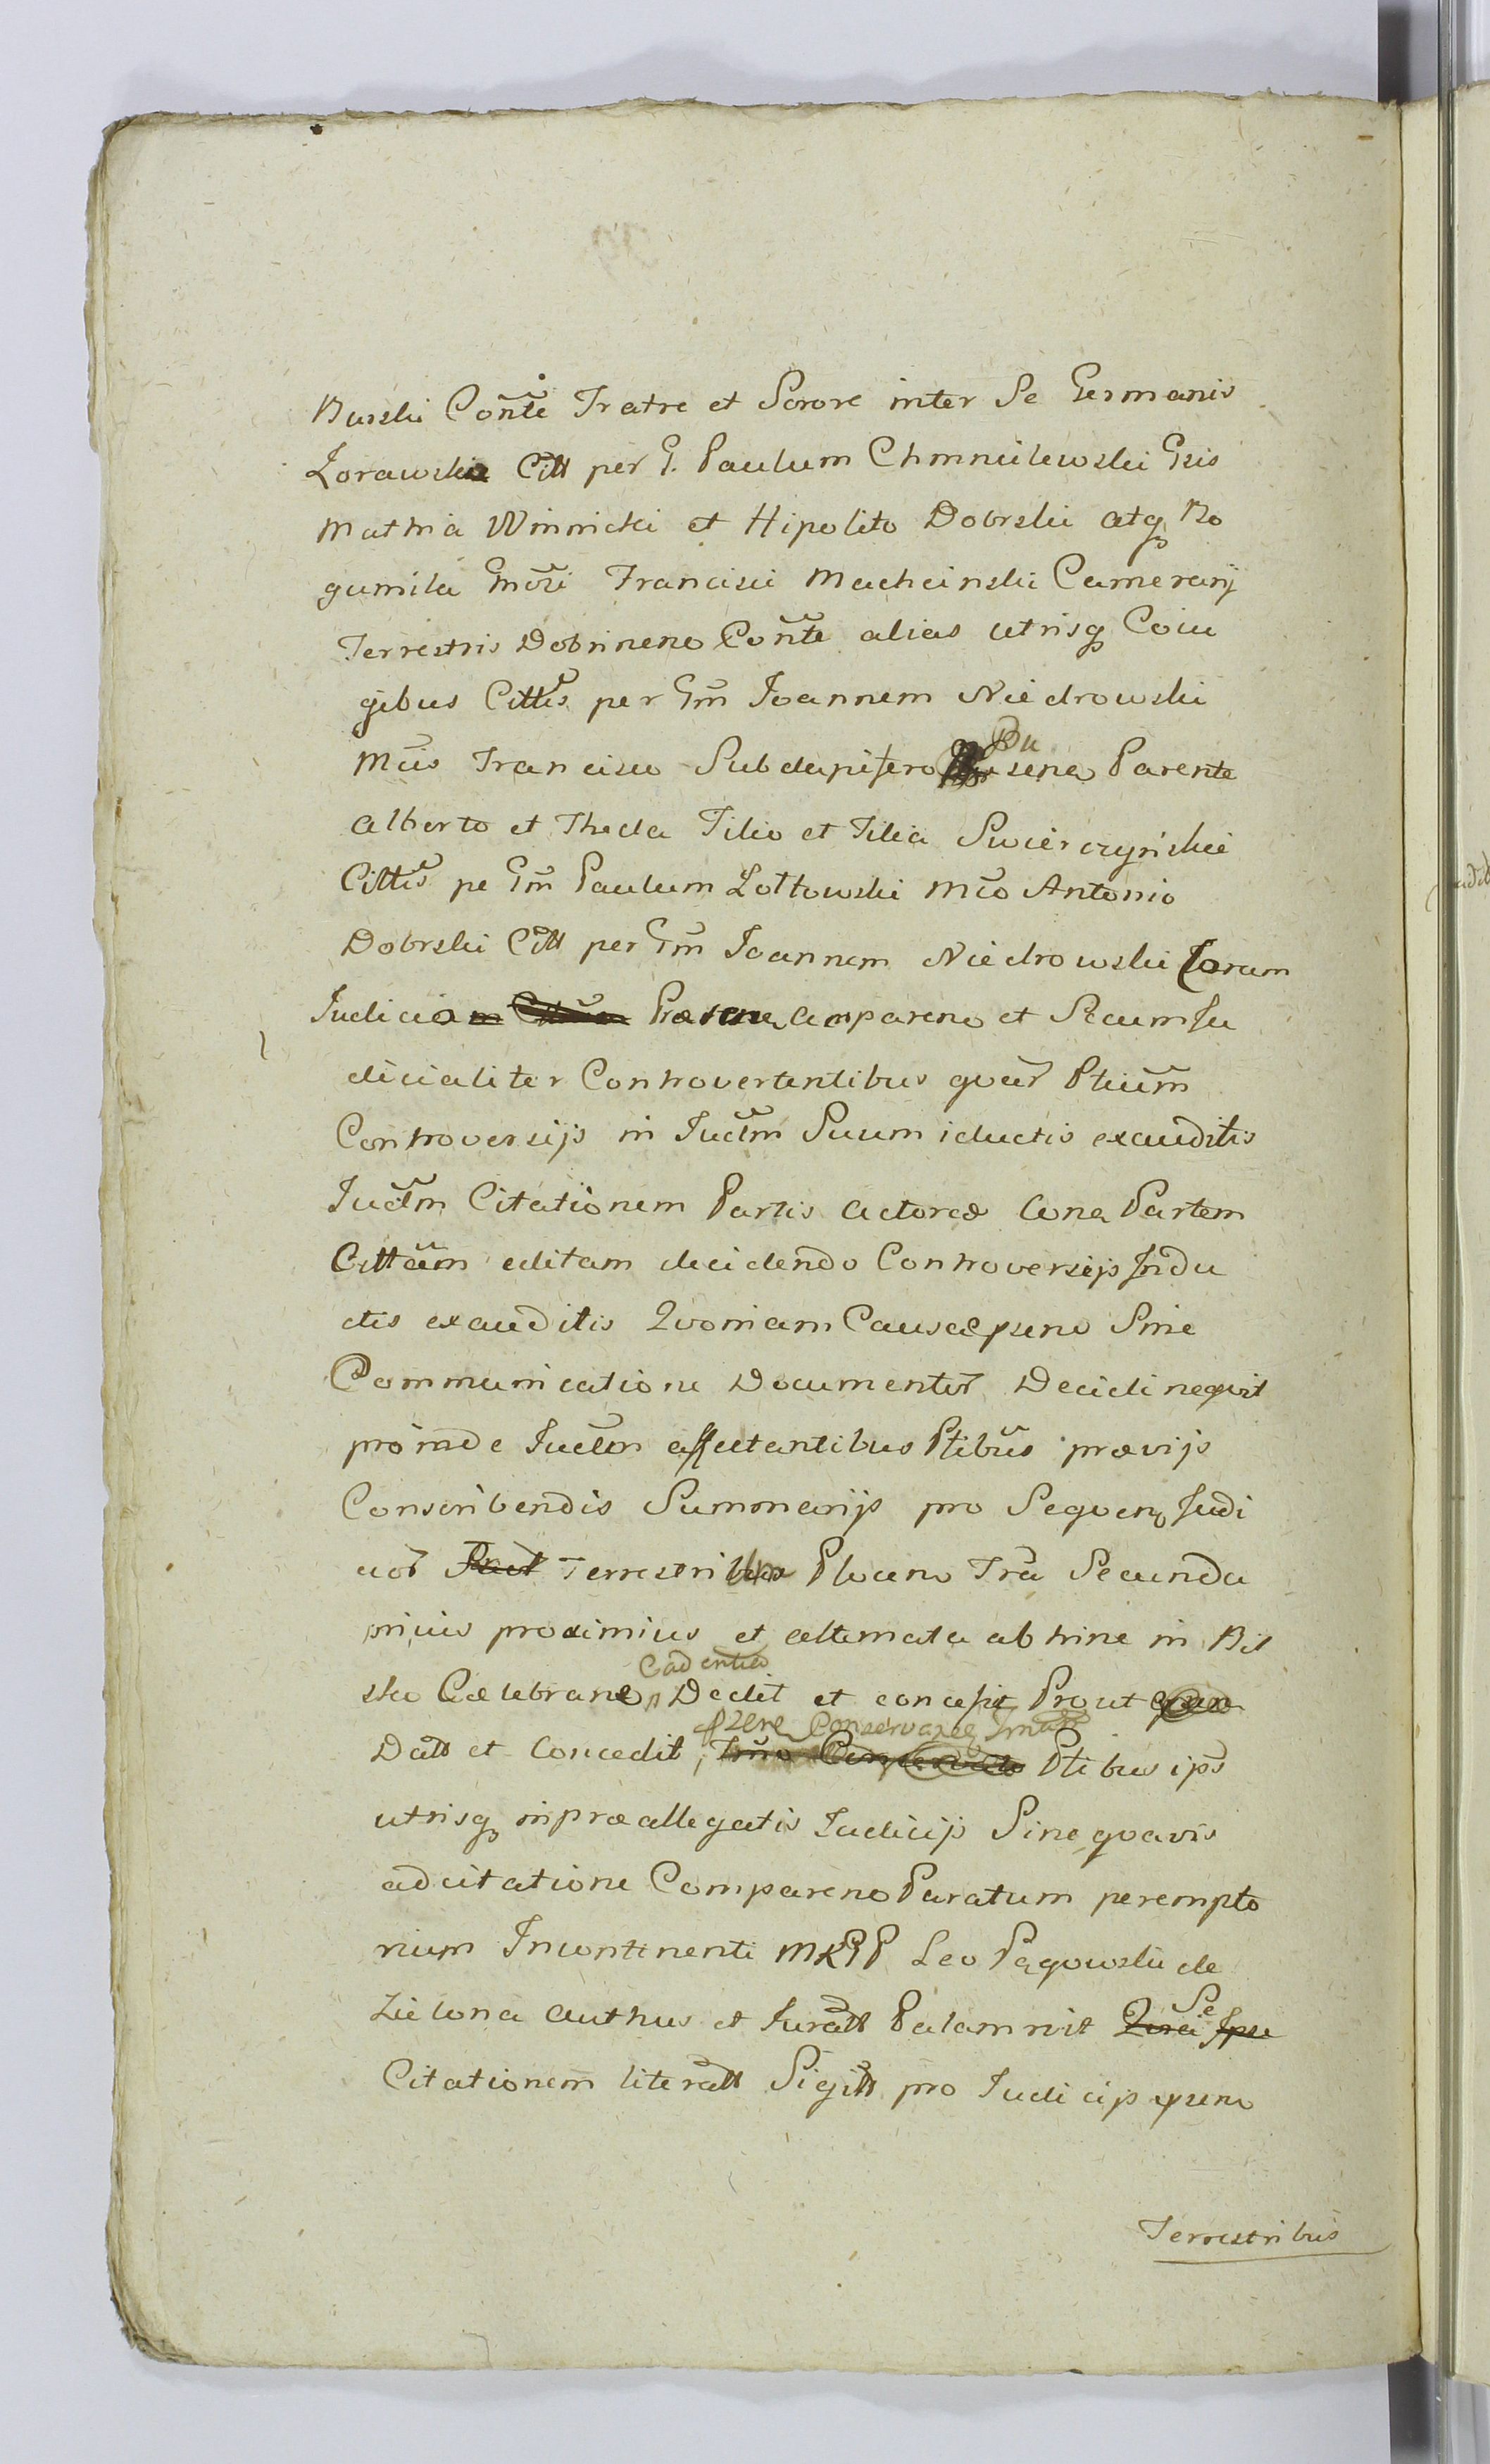 Burski Conte Fratre et Sorore inter Se Germanis
Zorawskie Citt per G. Paulum Chmnilewski Gsis
Mathia Winnicki et Hipolito Dobrski atq Bo
gumila Gmosi Francisci Machcinski Camerarij
Terrestris Dobrinens Conte alias utrisq Coiu
gibus Cittis per Gm Joannem Niedrowski
Mcis Francisco Subdapifero sene Parente
Alberto et Thecla Filio et Filia Swierczynskie
Cittis pe Gm Paulum Zottowski Mco Antonio
Dobrski Citt per Gm Joannem Niedrowski Coram
Judicio Præsene Comparene et Secum Ju
dicialiter Controvertentibus quar Ptium
Controversijs in Judm Suum iductis exauditis
Judm Citationem Partis actoreæ Cone Partem
Cittam editam decidendo Controversijs Indu
ctis exauditis Qvoniam Causa psens Sine
Communicatione Documentor Decidi neqvit
proinde Judm affectantibus Ptibus prævijs
Conscribendis Summarijs pro Seqvens Judi
cior Terrestribus Plocens Fra Secunda
priuis proximius et ultimata abhine in Bil
sko Cælebrane Cadentia Dedit et concessit Prout
Datt et Concedit, Conservatæ Ptibus ips
utrisq in præallegatis Judicijs Sine qvavis
adcitatione Comparens Paratum perempto
rium Incontinenti MRPP Leo Pągowski de
Zielona Authus et Juratt Palam rvit Se
Citationem literatt Sigitt pro Judicijs psens
Terrestribus